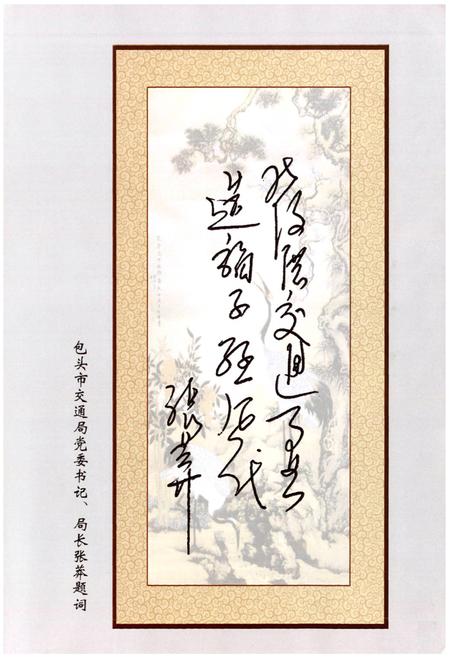 发展交通事业
造福子孙后代
张莽
包头市交通局党委书记、局长张莽题词